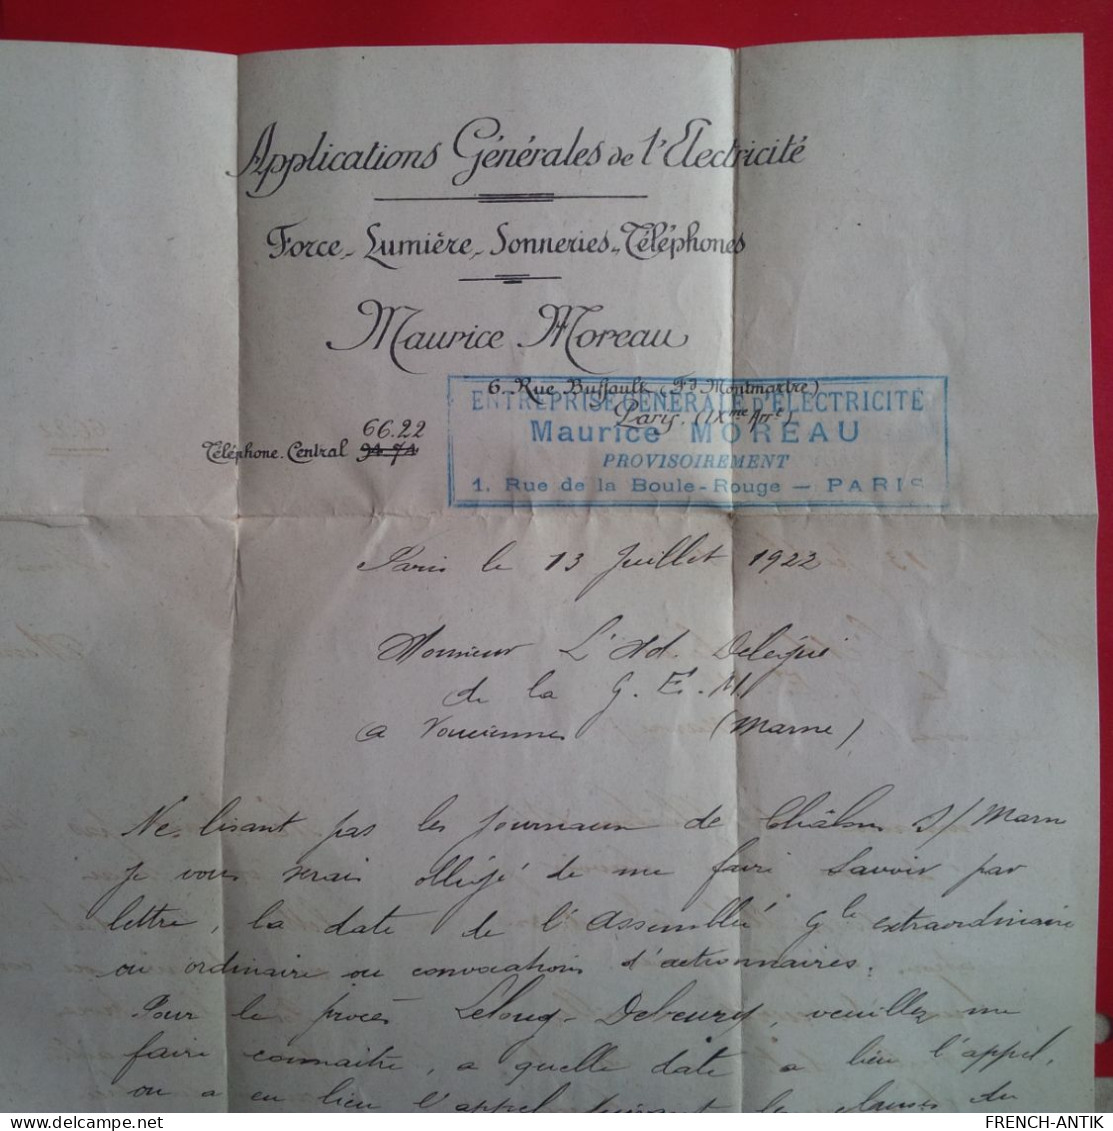 Applications Générales de l'Electricité
Force - Lumière - Sonneries - Téléphones
Maurice Moreau
6. Rue Buffault (Fg Montmartre)
Paris. (IXme Arrt)
66.22
Téléphone. Central 94-74
ENTREPRISE GÉNÉRALE D'ÉLECTRICITÉ
Maurice MOREAU
PROVISOIREMENT
1. Rue de la Boule-Rouge — PARIS
66.22
Paris le 13 Juillet 1922
Monsieur L'Ad. Délégué
de la G. E. M.
a Vouciennes (Marne)
Ne lisant pas les journaux de Châlons S/ Marn
je vous serais obligé de me faire savoir par
lettre, la date de l'assemblée gle extraordinaire
ou ordinaire ou convocations d'actionnaires.
Pour le procès Lelong-Debeury, veuillez me
faire connaitre, a quelle date a lieu l'appel,
ou a eu lieu l'appel suivant les clauses du
FRENCH-ANTIK